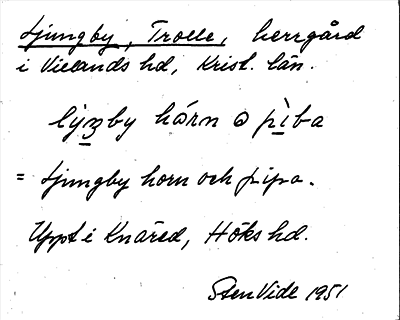 Ljungby, Trolle, herrgård
i Villands hd, Krist. län.
lýŋby hórn ɷ pìba
= Ljungby horn och pipa.
Uppt i Knäred, Höks hd.
Sten Vide 1951